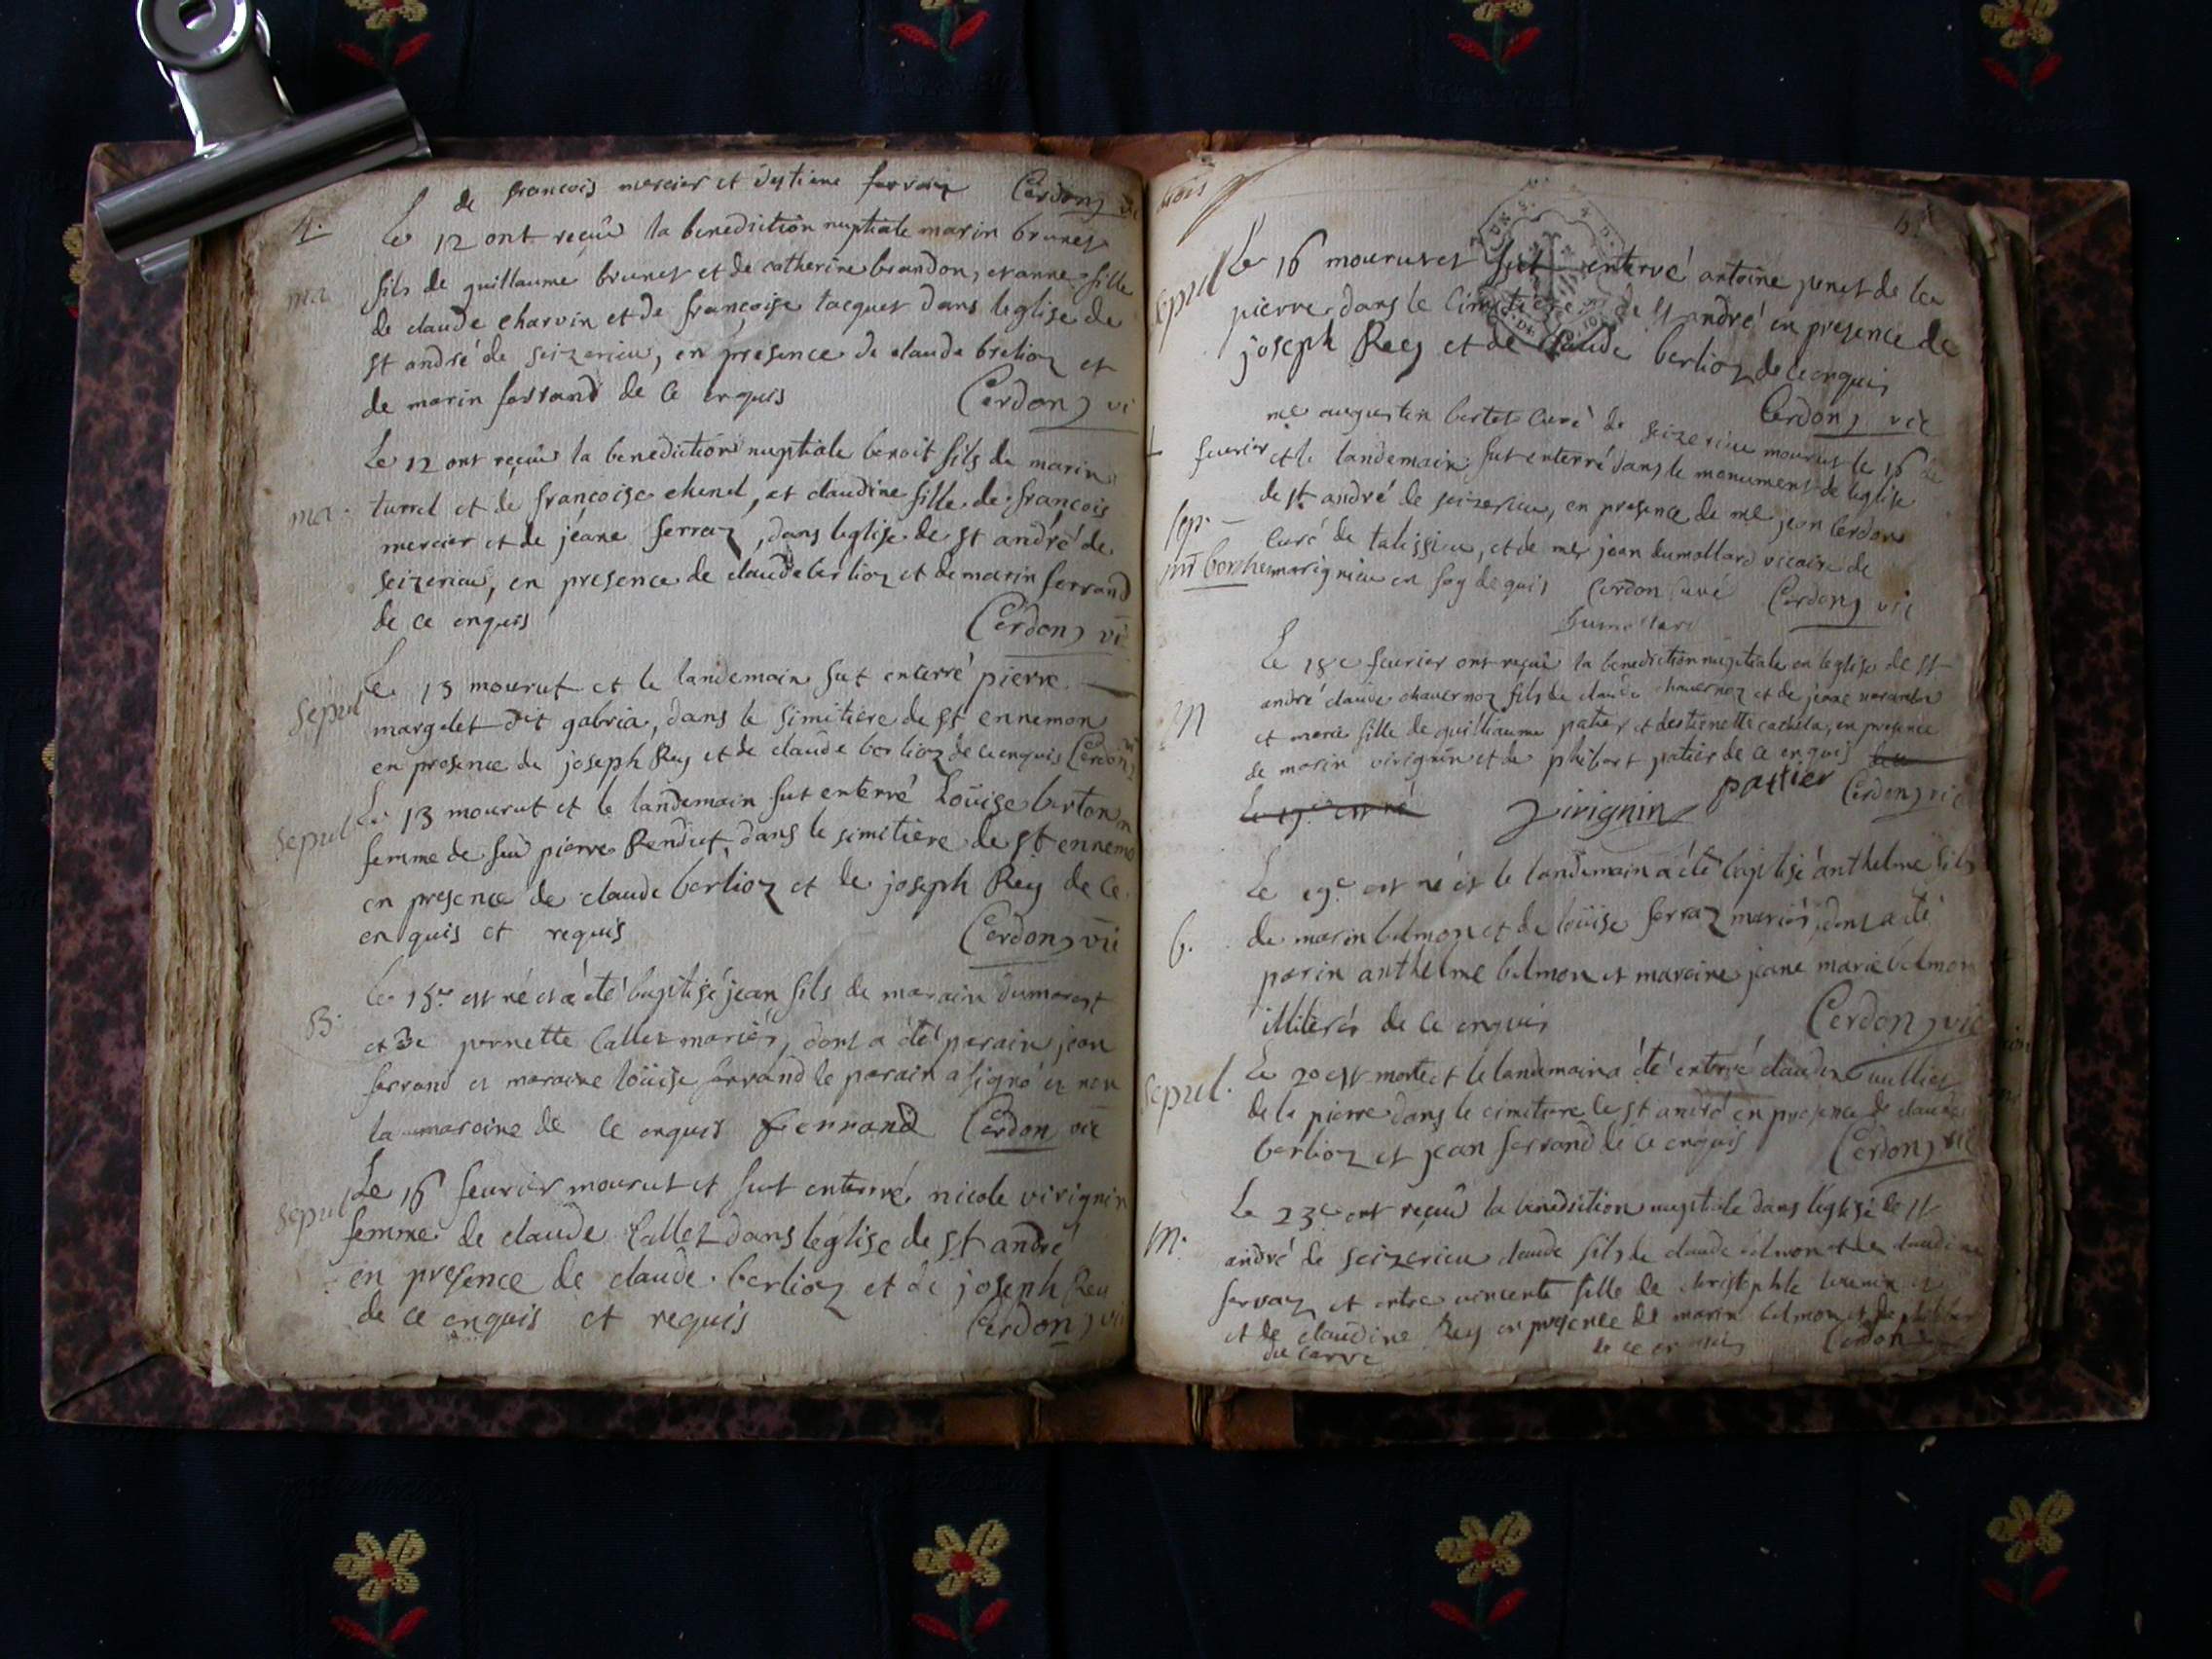 de francois mercier et destiene ferraz Cerdon vi
4.
Le 12 ont reçiû la benediction nuptiale marin brunet
ma fils de guillaume brunet et de catherine brandon, et anne fille
de claude charvin et de françoise tacquet dans leglise de
st andré de seizerieu, en presence de claude berlioz et
de marin ferrand de ce enquis Cerdon vi
Le 12 ont reçiû la benediction nuptiale benoit fils de marin
ma. turrel et de françoise chenel, et claudine fille de françois
mercier et de jéane ferraz, dans leglise de st andré de
seizerieu, en presence de claude berlioz et de marin ferrand
de ce enquis Cerdon vi
sepul Le 13 mourut et le landemain fut enterré pierre
margelet dit gabria, dans le simitiere de st ennemon
en presence de joseph Rey et de claude berlioz de ce enquis Cerdon vi
sepul Le 13 mourut et le landemain fut enterré Loüise berton
femme de feu pierre Rendut, dans le simitiere de st ennemo
en presence de claude berlioz et de joseph Rey de ce
enquis et requis Cerdon vic
B. Le 15e est né et a été baptisé jean fils de marain dumarest
et de pernette Callet mariés, dont a été parain jean
ferrand et maraine loüise ferrand le parain a signé et non
la maraine de ce enquis Ferrand Cerdon vic
sepul Le 16 feurier mourut et fut enterré nicole virignin
femme de claude Callet dans léglise de st andré
en presence de claude berlioz et de joseph Rey
de ce enquis et requis Cerdon vic
trois
sepul Le 16 mourut et fut enterré antoine junet de la
pierre dans le Cimitiere de st andré en presence de
joseph Rey et de claude berlioz de ce enquis
Cerdon vic
me augustin bertet Curé de seizerieu mourut le 16 de
feurier et le landemain fut enterré dans le monument de leglise
sep. de st andré de seizerieu, en presence de me jean Cerdon
Curé de talissieu, et de me jean dumollard vicaire de
marignieu en foy de quis Cerdon curé Cerdon vic
Dumollard
Le 18e feurier ont reçiû la benediction nuptiale en leglise de st
andré claude chavernoz fils de claude chavernoz et de jeane
M et marie fille de guilliaume patier et destienette cachela, en presence
de marin virignin et de philbert patier de ce enquis
Le 19e est né Virignin pattier Cerdon vic
Le 19e est né et le landemain a été baptisé anthelme fils
b. de marin belmon et de loüise ferraz mariés, dont a été
parin anthelme belmon et maraine jeane marie belmon
illiterés de ce enquis Cerdon vic
sepul. Le 20 est morte et le landemain a été enterré claudine vulliet
de la pierre dans le cimitiere de st andré en presence de claude
berlioz et jean ferrand de ce enquis Cerdon vic
Le 23e ont reçiû la benediction nuptiale dans léglise de st
m. andré de seizerieu claude fils de claude belmon et de claudine
servaz et entre vincente fille de christophle
et de claudine Rey en presence de marin belmon et de philber
du carre de ce enquis Cerdon